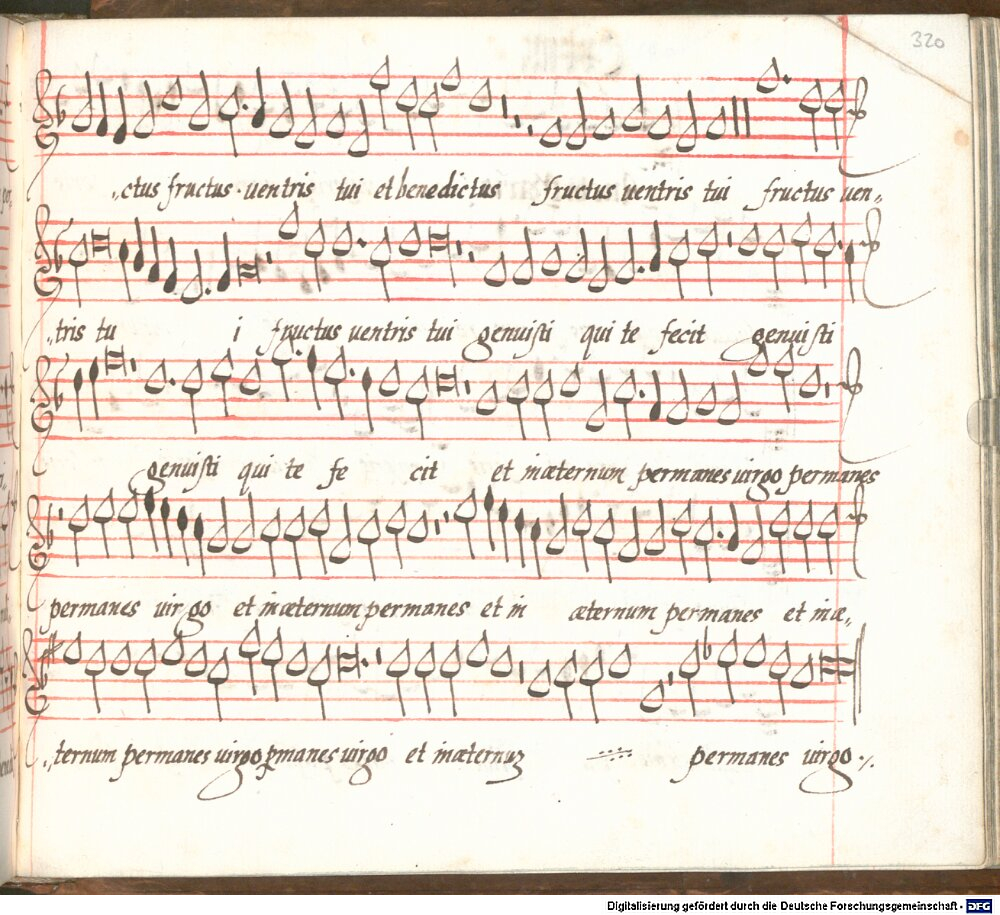 320
„ctus fructus ventris tui et benedictus fructus ventris tui fructus ven„
„tris tu i fructus ventris tui genuisti qui te fecit genuisti
genuisti qui te fe cit et inæternum permanes virgo permanes
permanes virgo et inæternum permanes et in æternum permanes et inæ„
„ternum permanes virgo ꝑmanes virgo et inæternuʒ permanes virgo
Digitalisierung gefördert durch die Deutsche Forschungsgemeinschaft - DFG